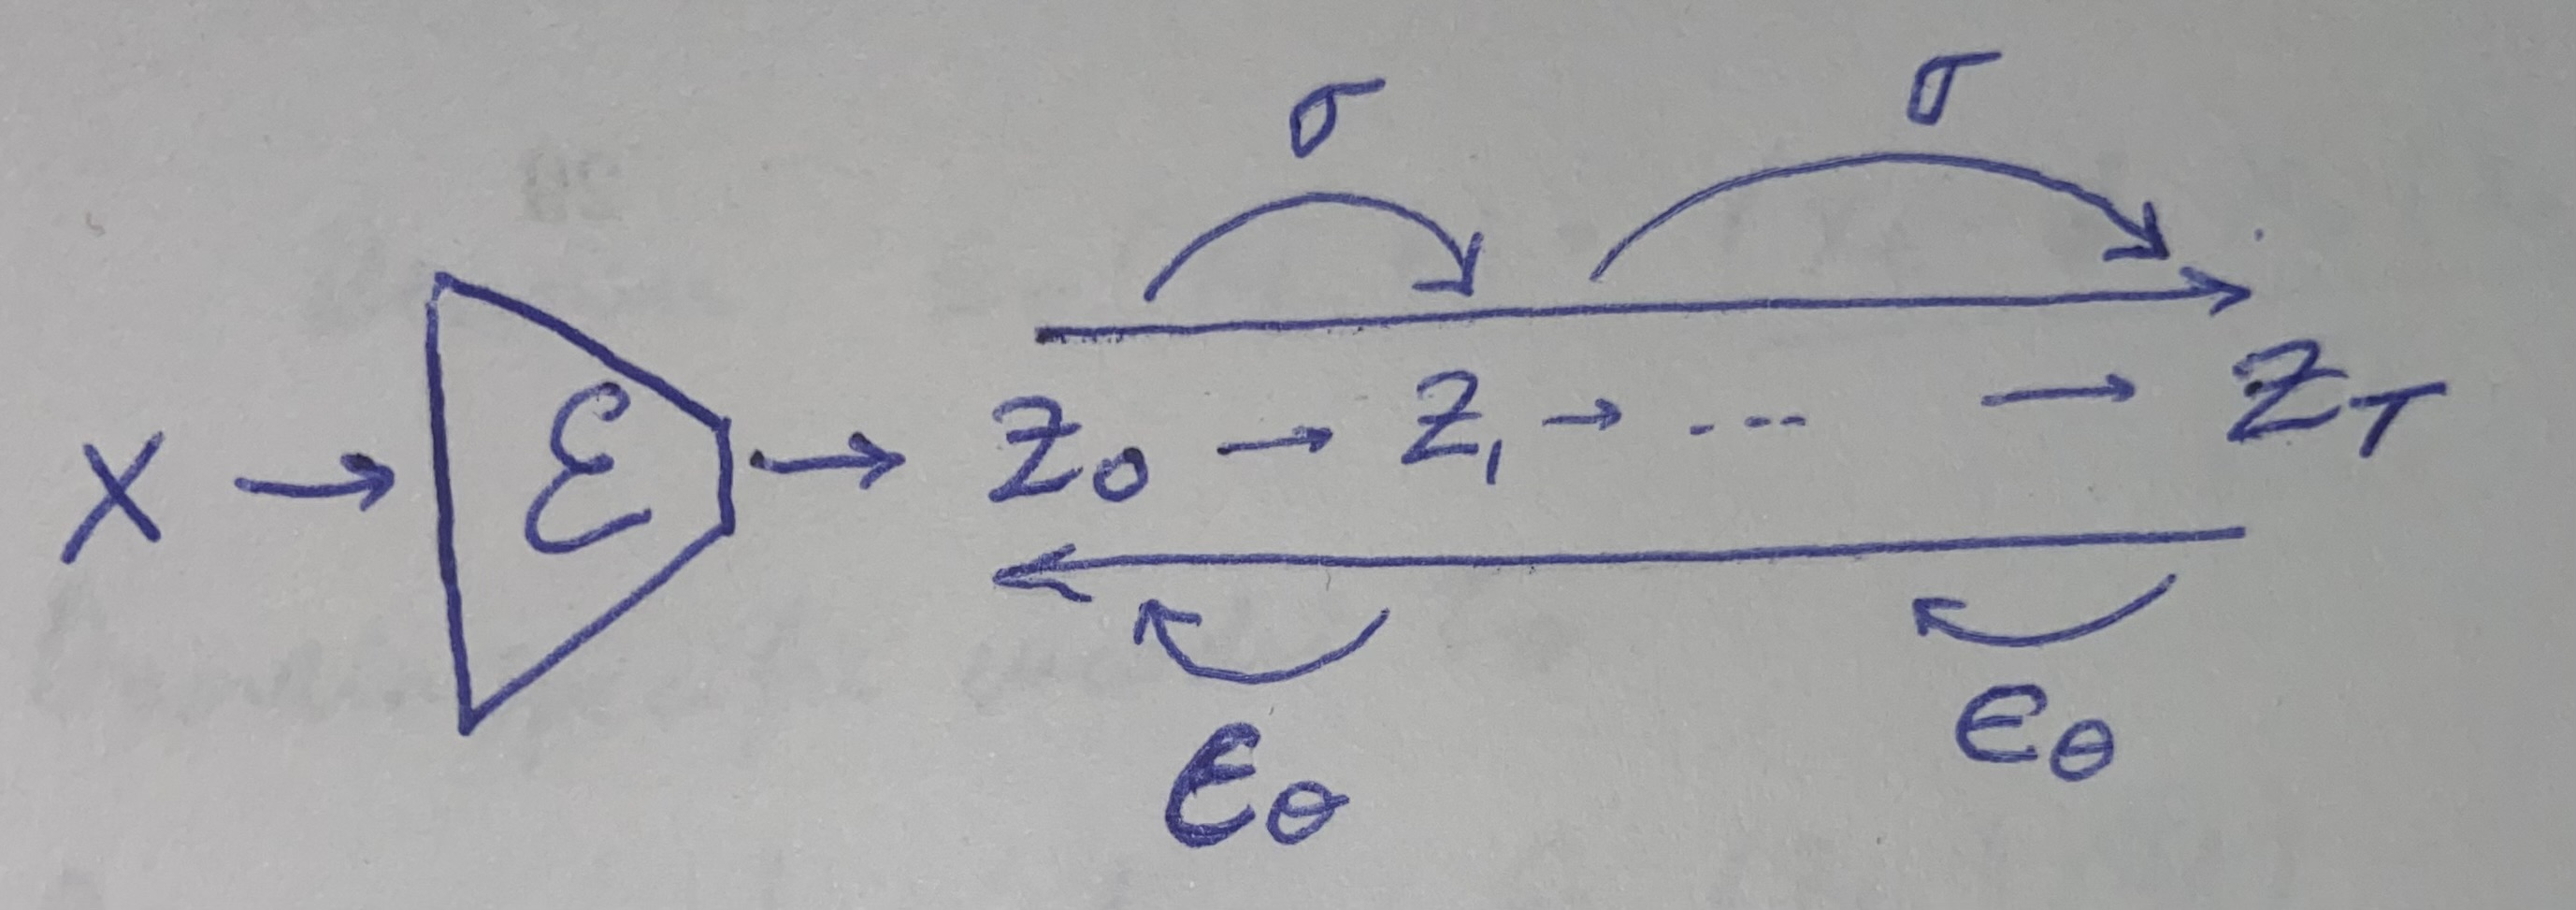 σ σ
X → ℰ → Z₀ → Z₁ → ... → Z_T
ϵ_θ ϵ_θ